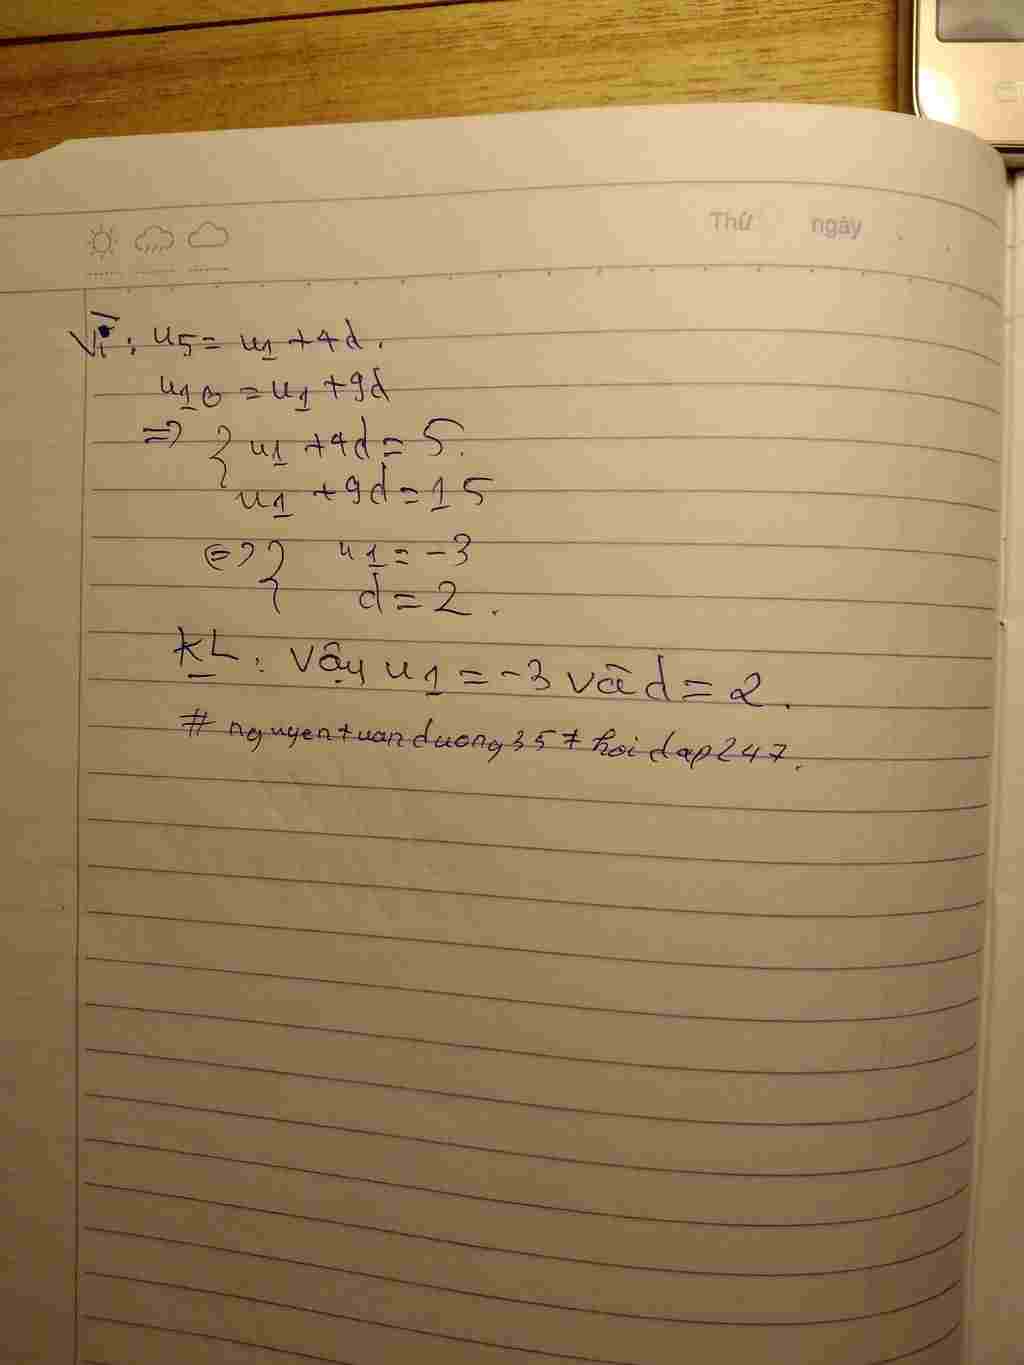 Thứ ngày
Vì: u5 = u1 + 4d.
u10 = u1 + 9d
=> { u1 + 4d = 5.
u1 + 9d = 15
<=> { u1 = -3
d = 2.
KL: Vậy u1 = -3 và d = 2.
# nguyentuanduong357 hoidap247.